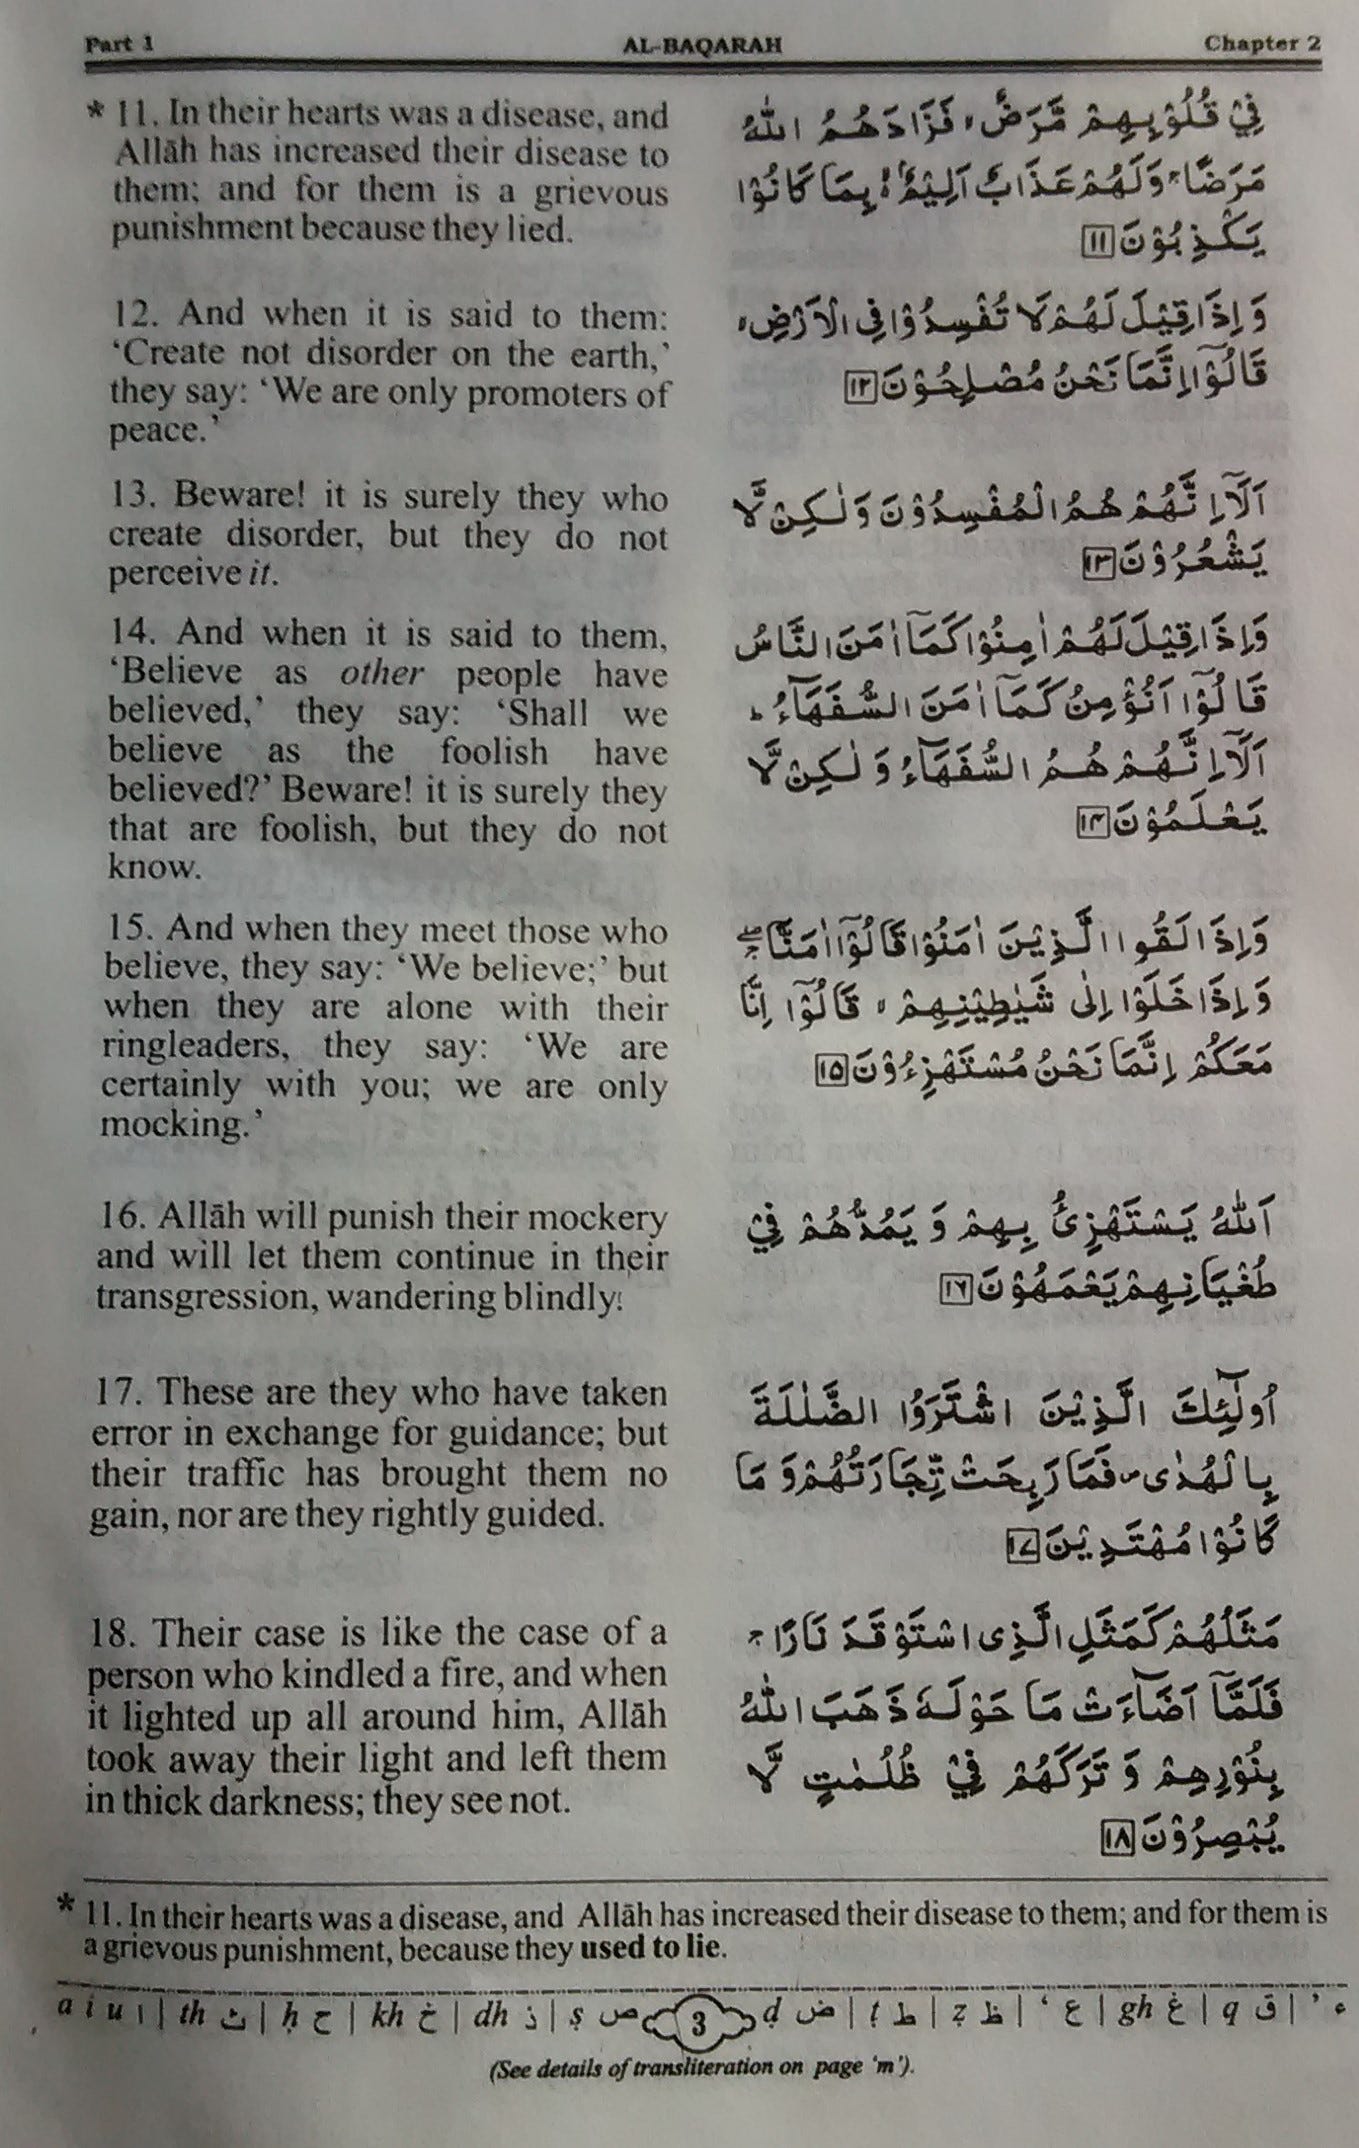 Part 1 AL-BAQARAH Chapter 2
* 11. In their hearts was a disease, and
Allāh has increased their disease to
them; and for them is a grievous
punishment because they lied.
فِيْ قُلُوْبِهِمْ مَّرَضٌ ۙ فَزَادَهُمُ اللّٰهُ
مَرَضًا ۚ وَلَهُمْ عَذَابٌ اَلِيْمٌۢ ۙ بِمَا كَانُوْا
يَكْذِبُوْنَ ١١
12. And when it is said to them:
‘Create not disorder on the earth,’
they say: ‘We are only promoters of
peace.’
وَاِذَا قِيْلَ لَهُمْ لَا تُفْسِدُوْا فِى الْاَرْضِ ۙ
قَالُوْۤا اِنَّمَا نَحْنُ مُصْلِحُوْنَ ١٢
13. Beware! it is surely they who
create disorder, but they do not
perceive it.
اَلَاۤ اِنَّهُمْ هُمُ الْمُفْسِدُوْنَ وَلٰكِنْ لَّا
يَشْعُرُوْنَ ١٣
14. And when it is said to them,
‘Believe as other people have
believed,’ they say: ‘Shall we
believe as the foolish have
believed?’ Beware! it is surely they
that are foolish, but they do not
know.
وَاِذَا قِيْلَ لَهُمْ اٰمِنُوْا كَمَاۤ اٰمَنَ النَّاسُ
قَالُوْۤا اَنُؤْمِنُ كَمَاۤ اٰمَنَ السُّفَهَآءُ ؕ
اَلَاۤ اِنَّهُمْ هُمُ السُّفَهَآءُ وَلٰكِنْ لَّا
يَعْلَمُوْنَ ١٤
15. And when they meet those who
believe, they say: ‘We believe;’ but
when they are alone with their
ringleaders, they say: ‘We are
certainly with you; we are only
mocking.’
وَاِذَا لَقُوا الَّذِيْنَ اٰمَنُوْا قَالُوْۤا اٰمَنَّا ۚۖ
وَاِذَا خَلَوْا اِلٰى شَيٰطِيْنِهِمْ ۙ قَالُوْۤا اِنَّا
مَعَكُمْ اِنَّمَا نَحْنُ مُسْتَهْزِءُوْنَ ١٥
16. Allāh will punish their mockery
and will let them continue in their
transgression, wandering blindly.
اَللّٰهُ يَسْتَهْزِئُ بِهِمْ وَ يَمُدُّهُمْ فِيْ
طُغْيَانِهِمْ يَعْمَهُوْنَ ١٦
17. These are they who have taken
error in exchange for guidance; but
their traffic has brought them no
gain, nor are they rightly guided.
اُولٰٓئِكَ الَّذِيْنَ اشْتَرَوُا الضَّلٰلَةَ
بِالْهُدٰى ۪ فَمَا رَبِحَتْ تِّجَارَتُهُمْ وَ مَا
كَانُوْا مُهْتَدِيْنَ ١٧
18. Their case is like the case of a
person who kindled a fire, and when
it lighted up all around him, Allāh
took away their light and left them
in thick darkness; they see not.
مَثَلُهُمْ كَمَثَلِ الَّذِى اسْتَوْقَدَ نَارًا ۚ
فَلَمَّاۤ اَضَآءَتْ مَا حَوْلَهٗ ذَهَبَ اللّٰهُ
بِنُوْرِهِمْ وَ تَرَكَهُمْ فِيْ ظُلُمٰتٍ لَّا
يُبْصِرُوْنَ ١٨
* 11. In their hearts was a disease, and Allāh has increased their disease to them; and for them is
a grievous punishment, because they used to lie.
a i u ا | th ث | ḥ ح | kh خ | dh ذ | ṣ ص 3 ḍ ض | ṭ ط | ẓ ظ | ‘ ع | gh غ | q ق | ’ ء
(See details of transliteration on page ‘m’).